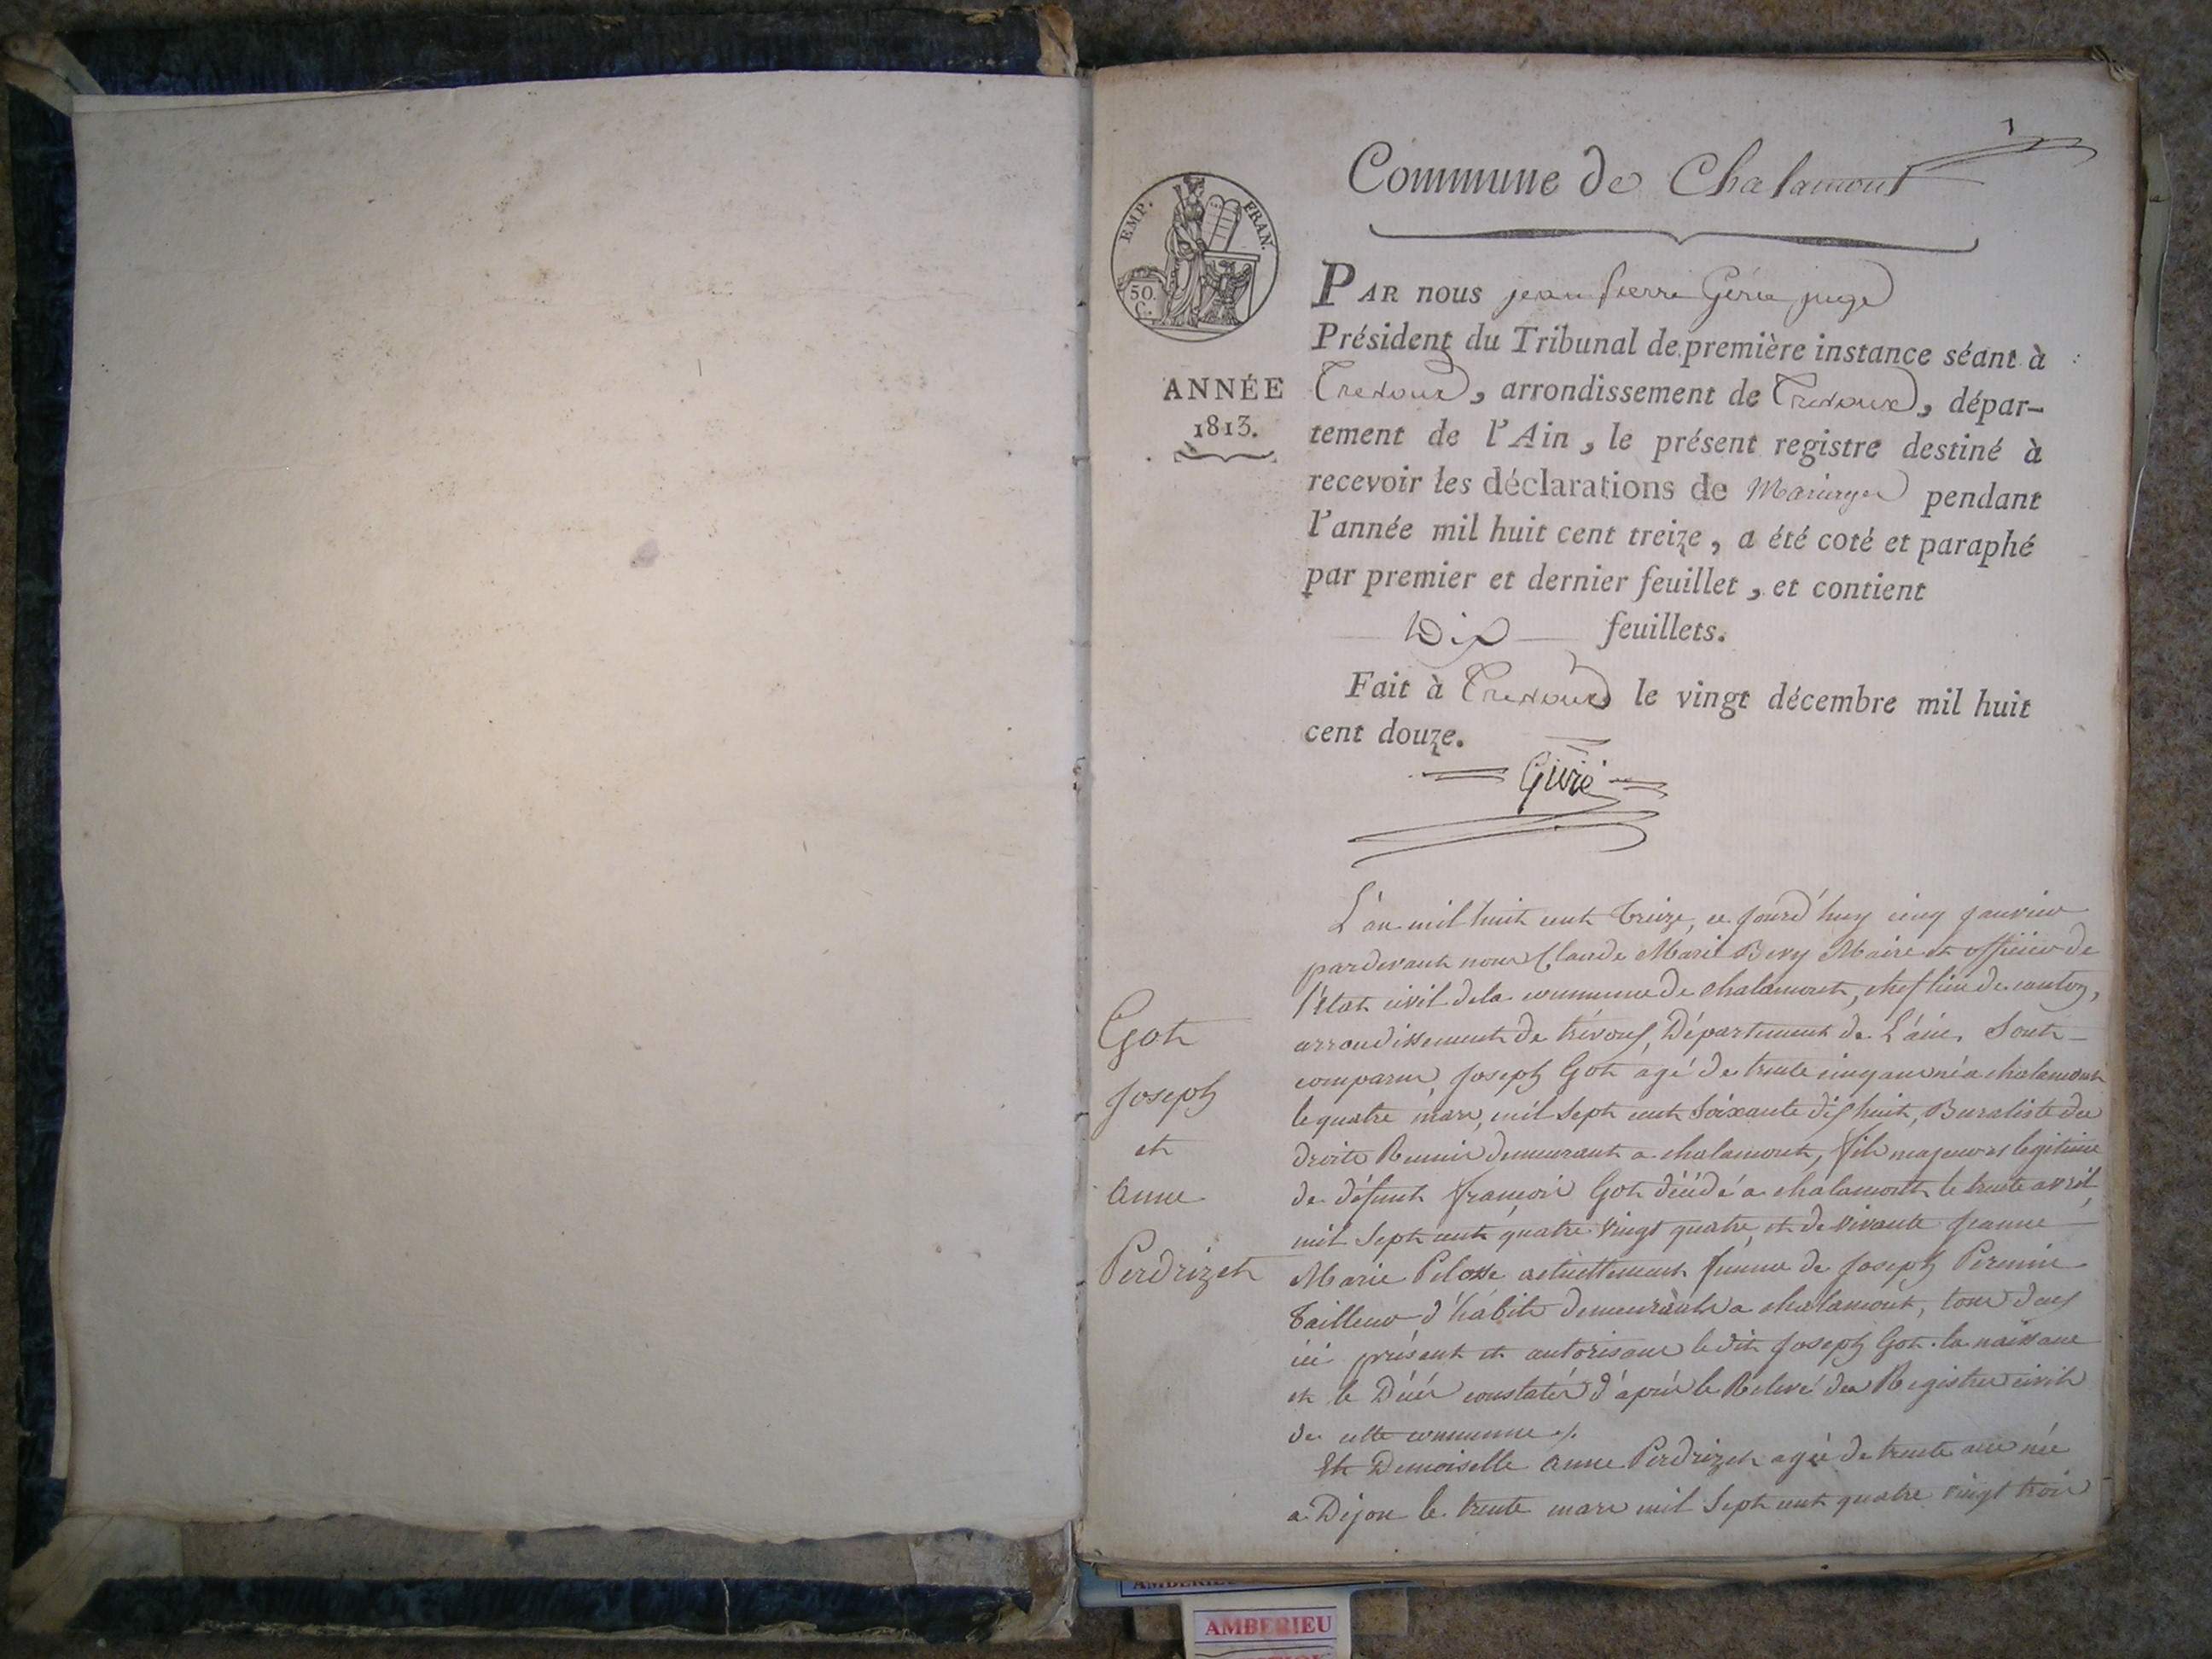 1
Commune de Chalamont
EMP. FRAN.
50.
C.
PAR nous jean pierre Givié juge
Président du Tribunal de première instance séant à
Trevoux, arrondissement de Trevoux, dépar-
ANNÉE
1813.
tement de l'Ain, le présent registre destiné à
recevoir les déclarations de Mariages pendant
l'année mil huit cent treize, a été coté et paraphé
par premier et dernier feuillet, et contient
Dix feuillets.
Fait à Trevoux le vingt décembre mil huit
cent douze.
Givié
L'an mil huit cent treize, ce jourd'huy cinq janvier
pardevant nous Claude Marie Bevy Maire et officier de
l'état civil de la commune de chalamont, chef lieu de canton,
arrondissement de trévoux, Département de L'ain. Sont
comparus, Joseph Got agé de trente cinq ans né a chalamont
le quatre mars, mil sept cent soixante dix huit, Buraliste des
droits Reunis demeurant a chalamont, fils majeur et legitime
de défunt françois Got décédé a chalamont le trente avril
mil sept cent quatre vingt quatre, et de vivante Jeanne
Marie Pelosse actuellement femme de Joseph
Tailleur d'habits demeurants a chalamont, tous deux
ici présent et autorisant ledit Joseph Got. la naissance
et le Décés constatés d'après le Relevé des Registres civils
de cette commune
Et Demoiselle Anne Perdrizet agée de trente ans née
a Dijon le trente mars mil sept cent quatre vingt trois
Got
Joseph
et
Anne
Perdrizet
AMBERIEU